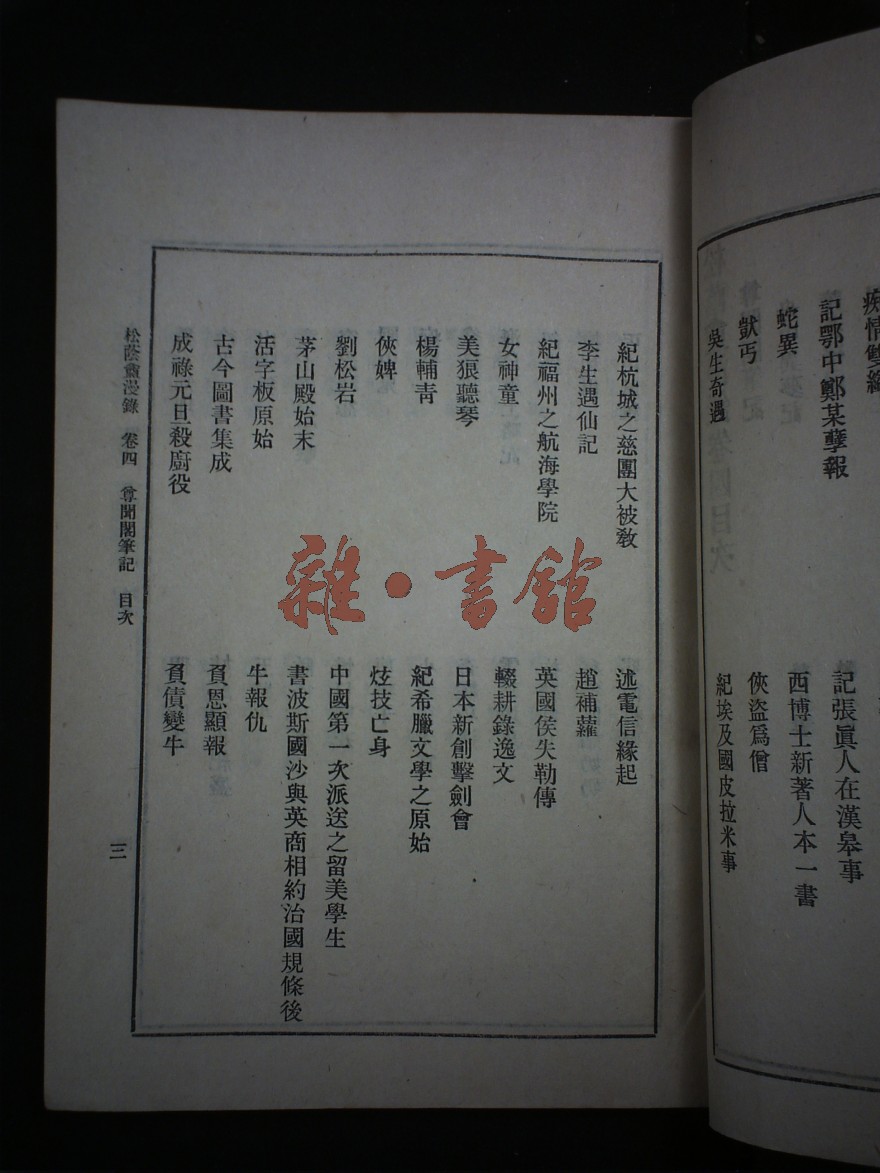 痴情雙緣
記鄂中鄭某孽報
記張眞人在漢皋事
蛇異
西博士新著人本一書
獃丐
俠盜爲僧
吳生奇遇
紀埃及國皮拉米事
紀杭城之慈團大被敎
述電信緣起
李生遇仙記
趙補蘿
紀福州之航海學院
英國侯失勒傳
女神童
輟耕錄逸文
美狠聽琴
日本新創擊劍會
楊輔靑
紀希臘文學之原始
俠婢
炫技亡身
劉松岩
中國第一次派送之留美學生
茅山殿始末
書波斯國沙與英商相約治國規條後
活字板原始
牛報仇
古今圖書集成
負恩顯報
成祿元旦殺廚役
負債變牛
松蔭盦漫錄 卷四 尊聞閣筆記 目次
三
雜·書館